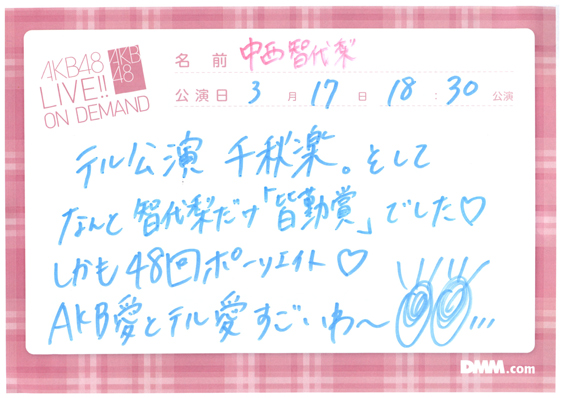 AKB48
LIVE!!
ON DEMAND
AKB
48
名前 中西智代梨
公演日 3月17日 18:30公演
テル公演 千秋楽。そして
なんと智代梨だけ「皆勤賞」でした♡
しかも48回ポーツエイト♡
AKB愛とテル愛すごいわ〜...
DMM.com